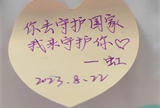 你去守护国家
我来守护你♡
——虹
2023.8.22